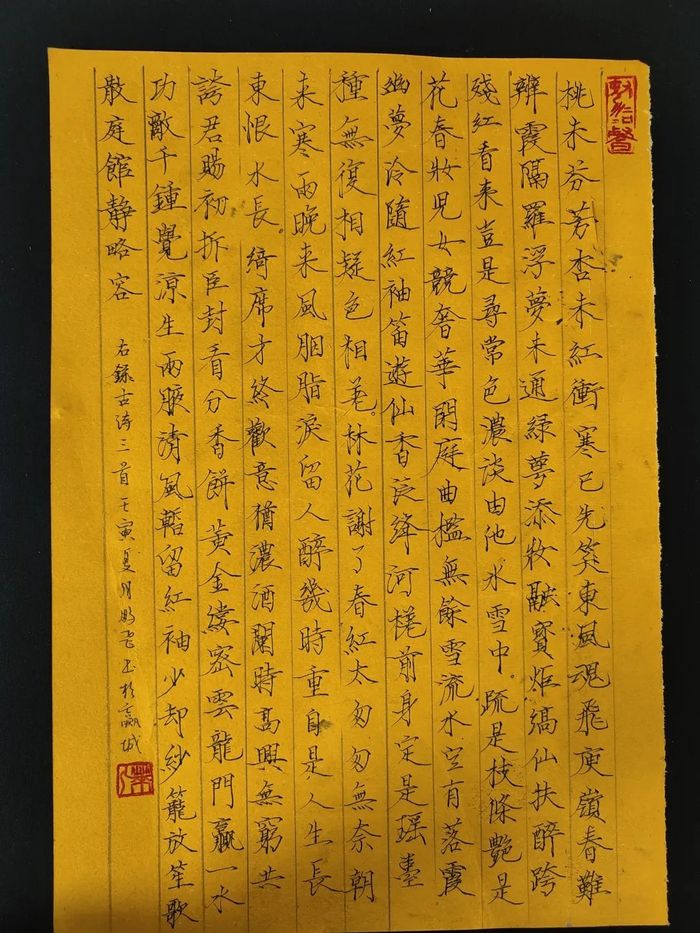 桃未芬芳杏未紅衝寒已先笑東風魂飛庾嶺春難
辨霞隔羅浮夢未通綠萼添妝融寶炬縞仙扶醉跨
殘紅看来豈是尋常色濃淡由他冰雪中疏是枝條艷是
花春妝兒女競奢華閑庭曲檻無餘雪流水空有落霞
幽夢冷隨紅袖笛遊仙香泛絳河槎前身定是瑤臺
種無復相疑色相差。林花謝了春紅太匆匆無奈朝
来寒雨晚来風胭脂淚留人醉幾時重自是人生長
東恨水長。綺席才終歡意猶濃酒闌時高興無窮共
誇君賜初拆臣封看分香餅黃金縷密雲龍鬥贏一水
功敵千鍾覺涼生兩腋清風暫留紅袖少却紗籠放笙歌
散庭館靜略容
右錄古诗三首壬寅夏月明飞书於嬴城